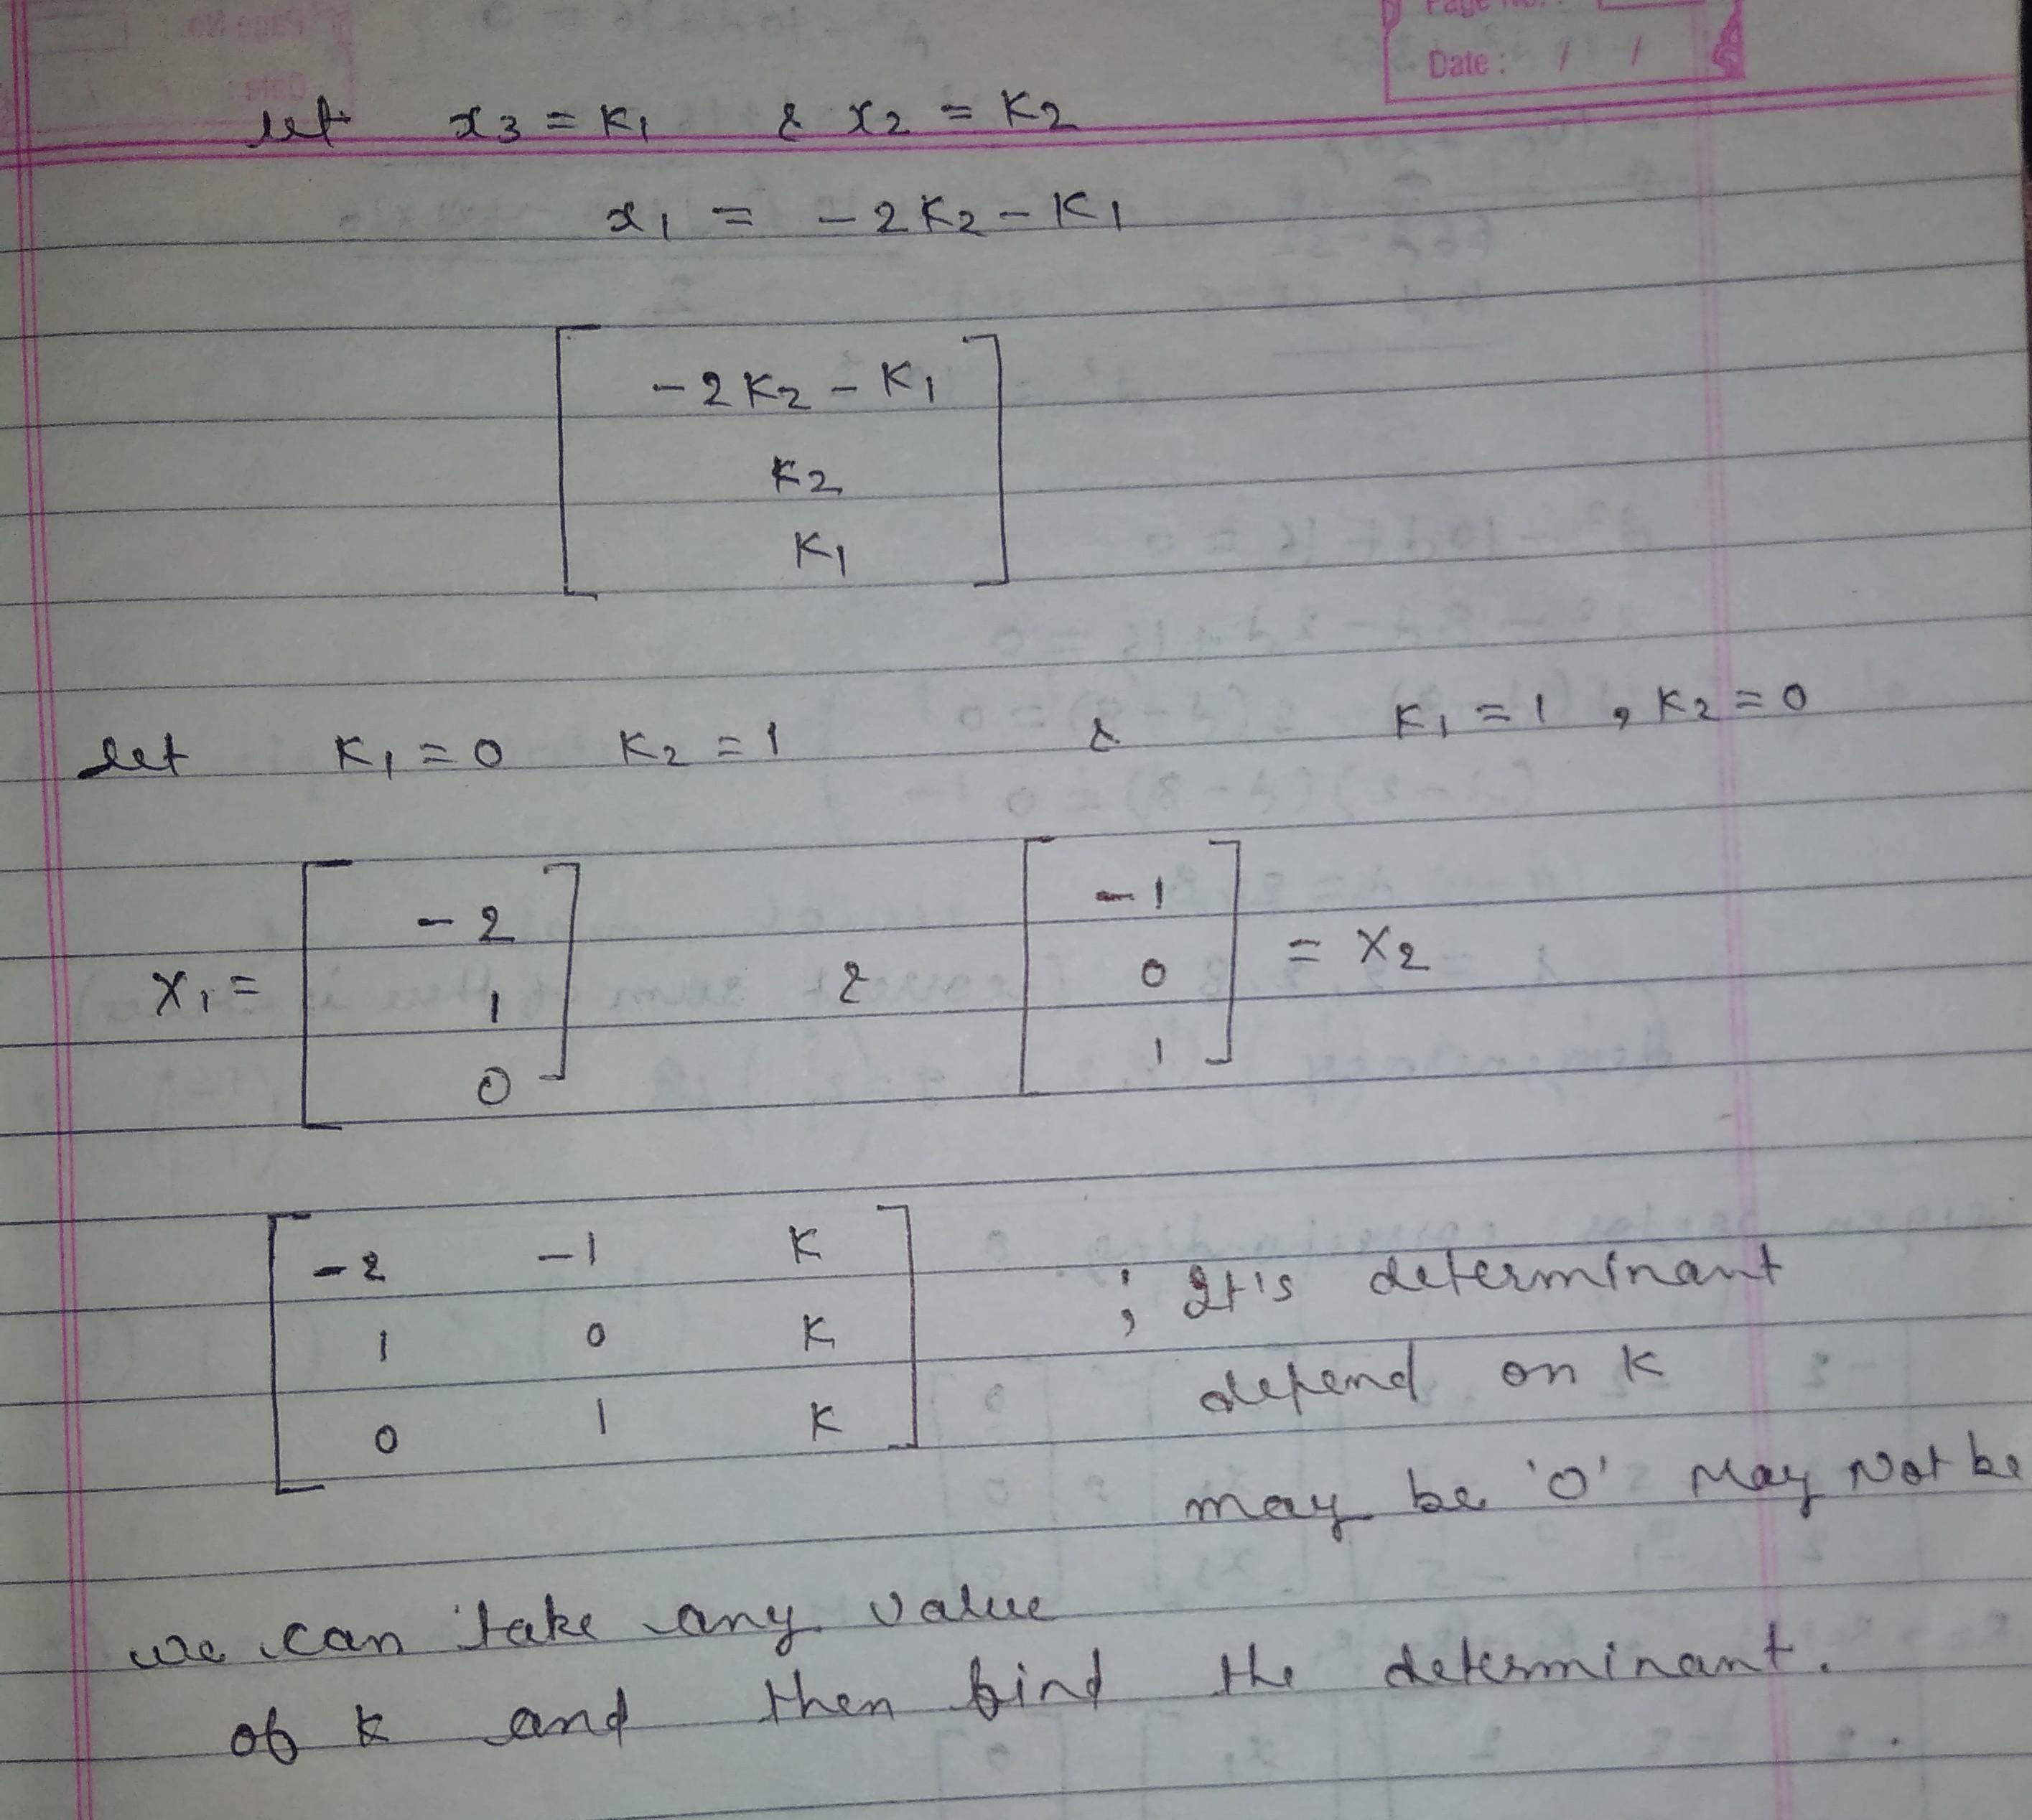 Page No. :
Date : / /
let x3 = K1 & x2 = K2
x1 = - 2 K2 - K1
- 2 K2 - K1
K2
K1
let K1 = 0 K2 = 1 & K1 = 1 , K2 = 0
X1 = [ - 2 1 0 ] & [ - 1 0 1 ] = X2
- 2 - 1 K
1 0 K
0 1 K
; It's determinant
depend on K
may be 'O' May Not be
we can take any value
of k and then find the determinant.